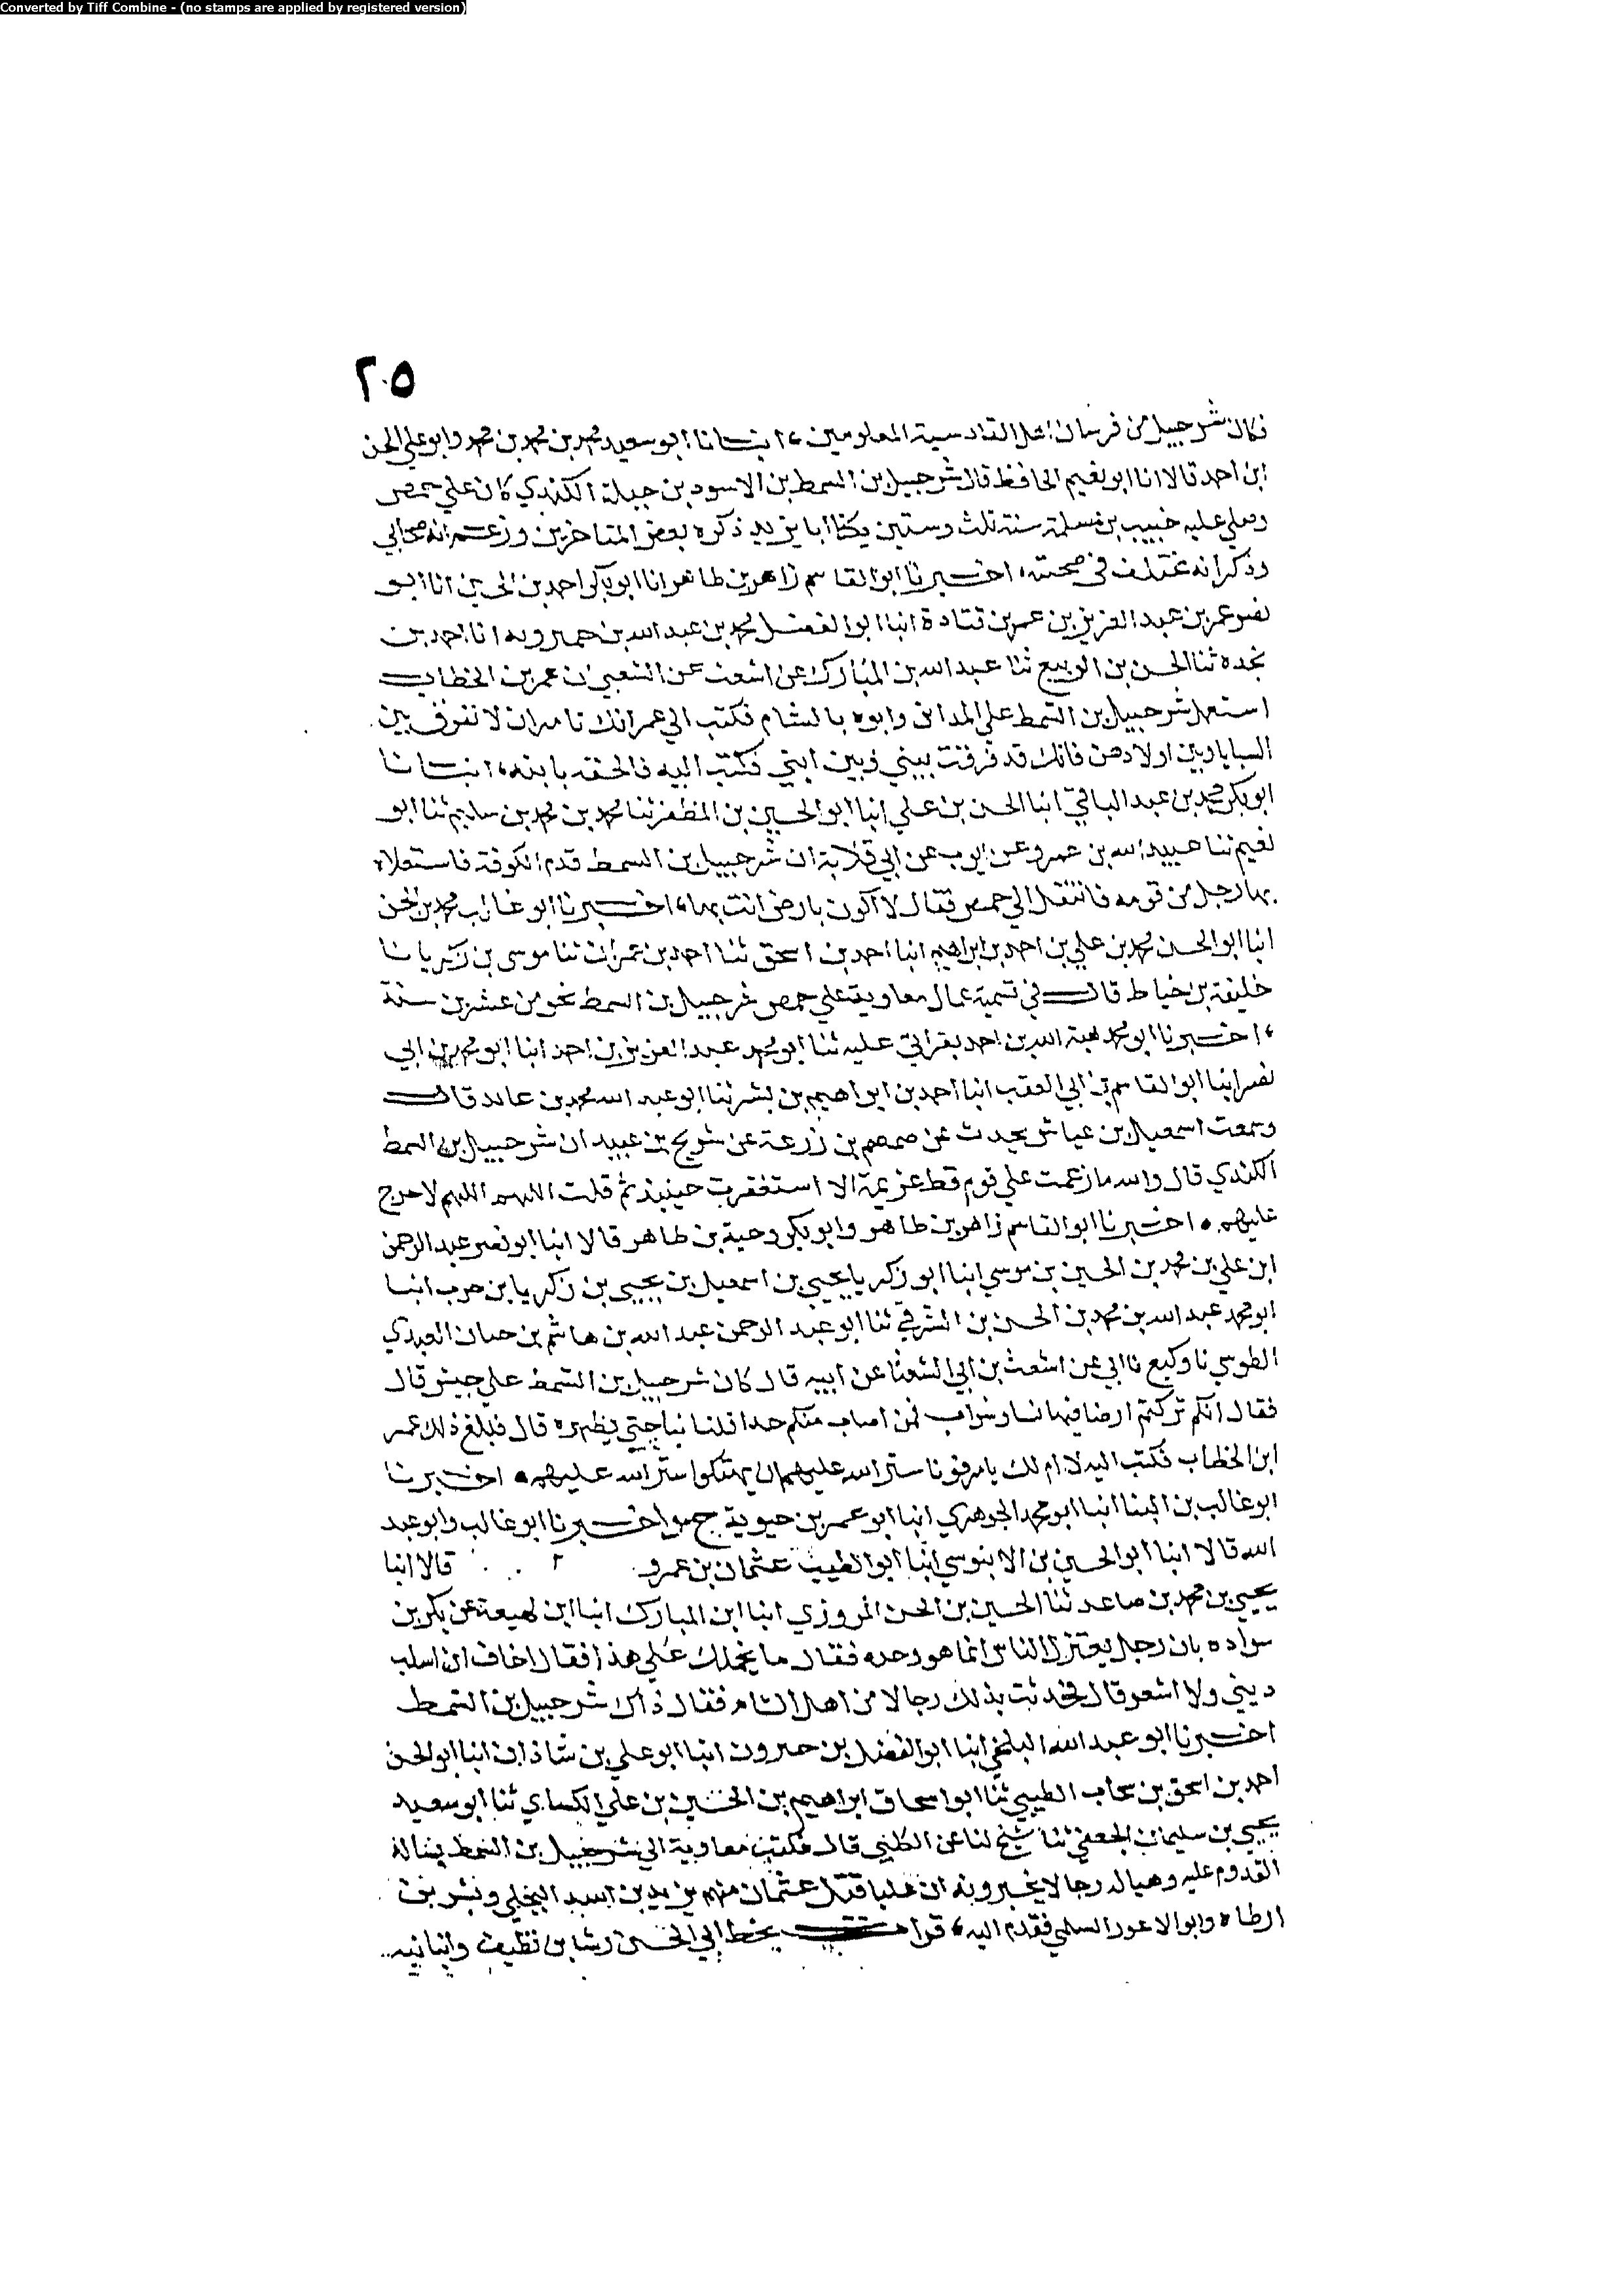 Converted by Tiff Combine - (no stamps are applied by registered version)
٢٠٥
فكان شرحبيل من فرسان اهل القادسية المعلومين، انبانا ابو سعيد محمد بن محمد بن محمد وابو علي الحسن
ابن احمد قالا انا ابو نعيم الحافظ قال شرحبيل بن السمط بن الاسود بن جبلة الكندي كان علي حمص
وصلي عليه حبيب بن مسلمة سنة ثلث وستين يكنا ابا يزيد ذكره بعض المتاخرين وزعم انه صحابي
وذكر انه مختلف في صحبته، اخبرنا ابو القاسم زاهر بن طاهر انا ابو بكر احمد بن الحسين انا ابو
نصر عمر بن عبد العزيز بن عمر بن قتادة انبا ابو الفضل محمد بن عبد الله بن خميرويه انا احمد بن
نجده ثنا الحسن بن الربيع ثنا عبد الله بن المبارك عن اشعث عن الشعبي ان عمر بن الخطاب
استعمل شرحبيل بن السمط علي المداين وابوه بالشام فكتب الي عمر انك تامر ان لا نفرق بين
السبايا وبين اولادهن فانك قد فرقت بيني وبين ابني فكتب اليه فالحقه بابنه، انبانا
ابو بكر محمد بن عبد الباقي انبا الحسن بن علي انبا ابو الحسين بن المظفر ثنا محمد بن محمد بن سليم ثنا ابو
نعيم ثنا عبيد الله بن عمرو عن ايوب عن ابي قلابة ان شرحبيل بن السمط قدم الكوفة فاستعلاه
بها رجل من قومه فانتقل الي حمص فقال لا اكون بارض انت بها، اخبرنا ابو غالب محمد بن الحسن
انبا ابو الحسن محمد بن علي بن احمد بن ابراهيم انبا احمد بن اسحق ثنا احمد بن عمران ثنا موسى بن زكريا نا
خليفة بن خياط قال في تسمية عمال معاوية علي حمص شرحبيل بن السمط نحو من عشرين سنة
، اخبرنا ابو محمد هبة الله بن احمد بقراتي عليه ثنا ابو محمد عبد العزيز بن احمد انبا ابو محمد بن ابي
نصر انبا ابو القاسم بن ابي العقب انبا احمد بن ابراهيم بن بشر ثنا ابو عبد الله محمد بن عايد قال
وسمعت اسمعيل بن عياش يحدث عن ضمضم بن زرعة عن شريح بن عبيد ان شرحبيل بن السمط
الكندي قال والله ما زعمت علي قوم قط عزيمة الا استغفرت حينيذ ثم قلت اللهم اللهم لا حرج
عليهم، اخبرنا ابو القاسم زاهر بن طاهر وابو بكر وجيه بن طاهر قالا انبا ابو نصر عبد الرحمن
ابن علي بن محمد بن الحسين بن موسي انبا ابو زكريا يحيي بن اسمعيل بن يحيي بن زكريا بن حرب انبا
ابو محمد عبد الله بن محمد بن الحسن بن الشرقي ثنا ابو عبد الرحمن عبد الله بن هاشم بن حيان العبدي
الطوسي نا وكيع نا ابي عن اشعث بن ابي الشعثا عن ابيه قال كان شرحبيل بن السمط علي جيش قال
فقال انكم تركتم ارضا فيها نسا وشراب فمن اصاب منكم حدا فلياتنا حتي يطهره قال فبلغ ذلك عمر
ابن الخطاب فكتب اليه لا ام لك يامر قوما ستر الله عليهم ان يهتكوا ستر الله عليهم، اخبرنا
ابو غالب بن البنا انبا ابو محمد الجوهري انبا ابو عمر بن حيوية ح واخبرنا ابو غالب وابو عبد
الله قالا انبا ابو الحسين بن الابنوسي انبا ابو الطيب عثمان بن عمرو قالا انبا
يحيي بن محمد بن صاعد ثنا الحسين بن الحسن المروزي انبا ابن المبارك انبا ابن لهيعة عن بكر بن
سواده بان رجل يعتزل الناس انما هو وحده فقال ما يحملك علي هذا فقال اخاف ان اسلب
ديني ولا اشعر قال فحدثت بذلك رجالا من اهل الشام فقال ذاك شرحبيل بن السمط
اخبرنا ابو عبد الله البلخي انبا ابو الفضل بن خيرون انبا ابو علي بن شاذان انبا ابو الحسن
احمد بن اسحق بن نيخاب الطيبي ثنا ابو اسحاق ابراهيم بن الحسين بن علي الكساي ثنا ابو سعيد
يحيي بن سليمان الجعفي ثنا شيخ لنا عن الكلبي قال فكتب معاوية الي شرحبيل بن السمط يساله
القدوم عليه وهيا له رجالا يخبرونه ان عليا قتل عثمان منهم يزيد بن اسد البجلي وبشر بن
ارطاه وابو الاعور السلمي فقدم اليه، قرات بخط ابي الحسن رشا بن نظيف وانبانيه